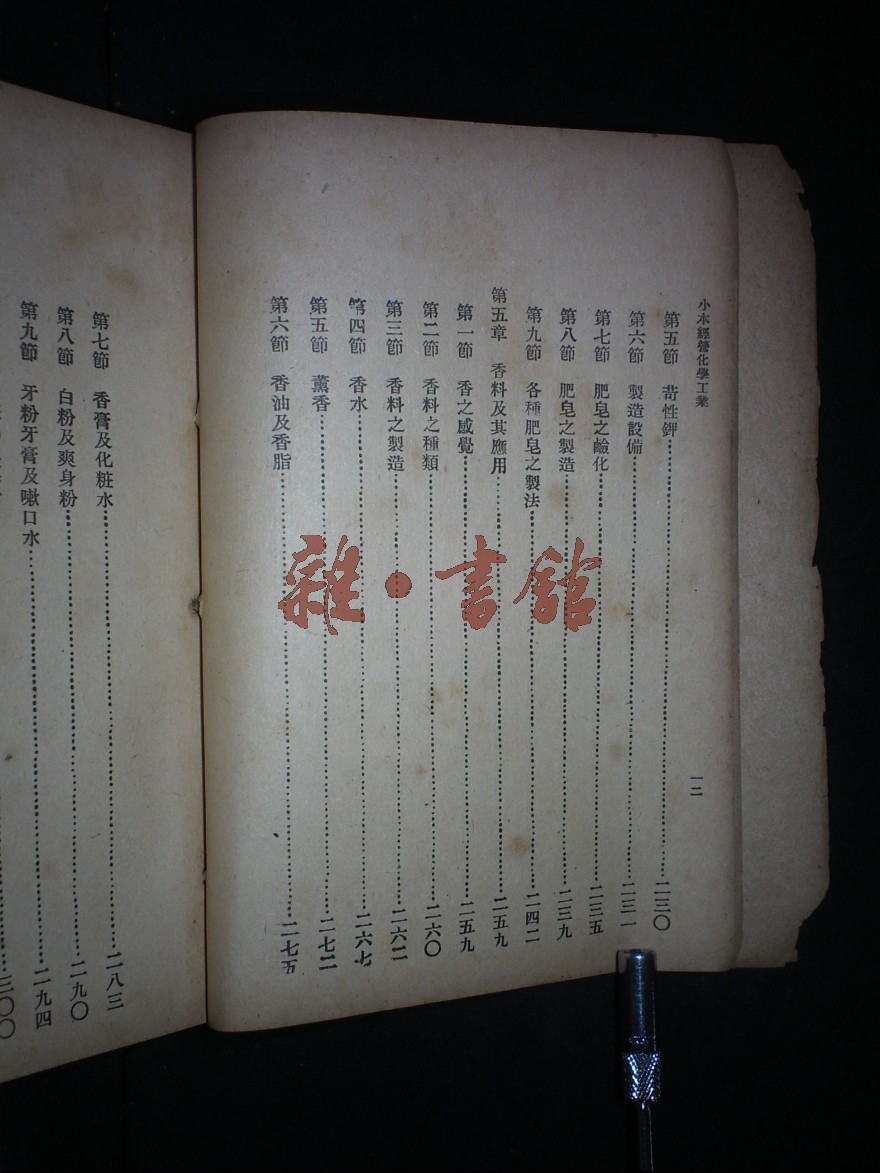 小本經營化學工業
一二
第五節 苛性鉀……二三〇
第六節 製造設備……二三一
第七節 肥皂之鹼化……二三五
第八節 肥皂之製造……二三九
第九節 各種肥皂之製法……二四二
第五章 香料及其應用……二五九
第一節 香之感覺……二五九
第二節 香料之種類……二六〇
第三節 香料之製造……二六二
第四節 香水……二六七
第五節 薰香……二七二
第六節 香油及香脂……二七五
第七節 香膏及化粧水……二八三
第八節 白粉及爽身粉……二九〇
第九節 牙粉牙膏及嗽口水……二九四
三〇〇
雜·書館